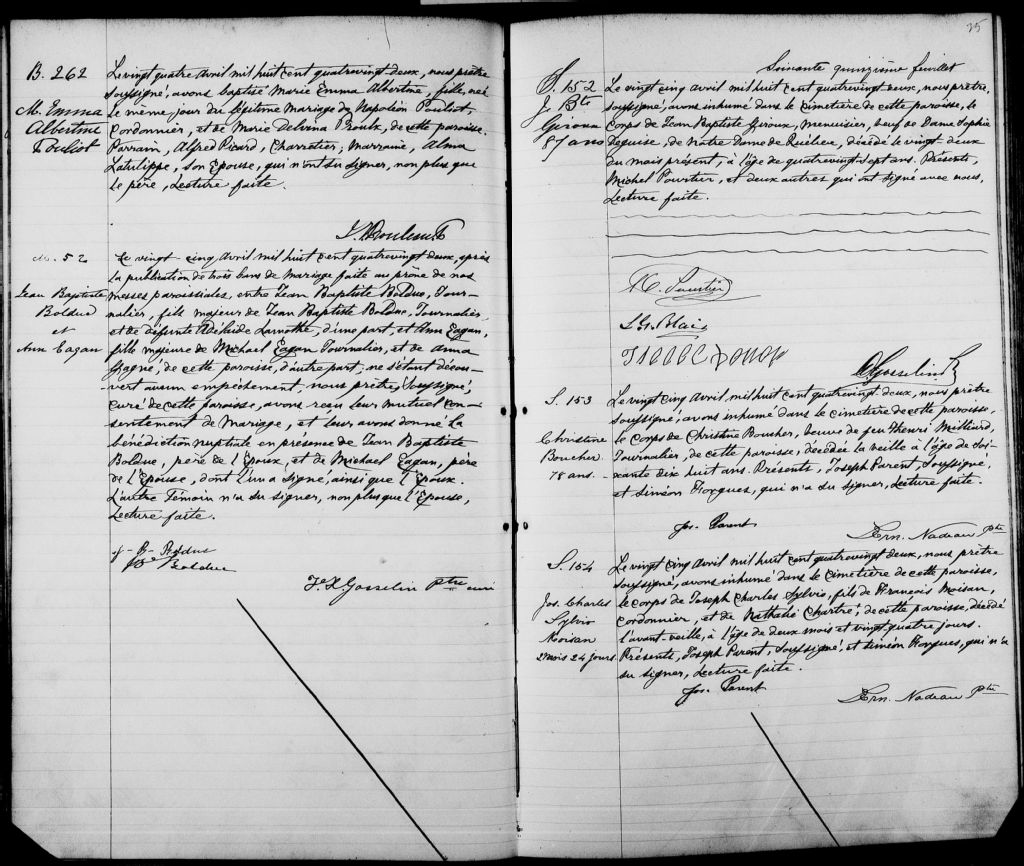 B. 262
M. Emma
Albertine
Pouliot
Le vingt quatre avril mil huit cent quatrevingt deux, nous prêtre
soussigné, avons baptisé Marie Emma Albertine, fille, née
le même jour du légitime mariage de Napoléon Pouliot,
Cordonnier, et de Marie Delvina Proulx, de cette paroisse.
Parrain, Alfred Picard, Charretier; Marraine, Alma
Latulippe, son Epouse, qui n'ont su signer, non plus que
le père, Lecture faite.
M. 52
Jean Baptiste
Bolduc
et
Ann Eagan
Le vingt cinq avril mil huit cent quatrevingt deux, après
la publication de trois bans de mariage faite au prône de nos
messes paroissiales, entre Jean Baptiste Bolduc, Jour-
nalier, fils majeur de Jean Baptiste Bolduc, Journalier,
et de défunte Adélaide Lamothe, d'une part, et Ann Eagan,
fille majeure de Michael Eagan Journalier, et de Anna
Gagné, de cette paroisse, d'autre part; ne s'étant décou-
vert aucun empêchement, nous prêtre, Soussigné,
curé de cette paroisse, avons reçu leur mutuel con-
sentement de Mariage, et leur avons donné la
bénédiction nuptiale en présence de Jean Baptiste
Bolduc, père de l'Epoux, et de Michael Eagan, père
de l'Epouse, dont l'un a signé, ainsi que l'Epoux.
L'autre Témoin n'a su signer, non plus que l'Epouse,
Lecture faite.
J-B-Bolduc
Bolduc
F. X Gosselin Ptre curé
75
Soixante quinzième feuillet
S. 152
J. Bte
Giroux
87 ans
Le vingt cinq avril mil huit cent quatrevingt deux, nous prêtre,
soussigné, avons inhumé dans le cimetière de cette paroisse, le
corps de Jean Baptiste Giroux, Menuisier, veuf de Dame Sophie
Deguise, de Notre Dame de Québec, décédé le vingt deux
du mois présent, à l'âge de quatrevingt sept ans. Présents,
Michel Pourtier, et deux autres qui ont signé avec nous,
Lecture faite.
L. G. Blais
S. 153
Christine
Boucher
78 ans.
Le vingt cinq avril mil huit cent quatrevingt deux, nous prêtre
soussigné, avons inhumé dans le cimetière de cette paroisse,
le corps de Christine Boucher, veuve de feu Henri Milliard,
Journalier, de cette paroisse, décédée la veille à l'âge de soi-
xante dix huit ans. Présents, Joseph Parent, Soussigné,
et Siméon Forgues, qui n'a su signer, Lecture faite.
Jos. Parent
Ern. Nadeau Ptre
S. 154
Jos. Charles
Sylvio
Moisan
2 mois 24 jours.
Le vingt cinq avril mil huit cent quatrevingt deux, nous prêtre
soussigné, avons inhumé dans le cimetière de cette paroisse,
le corps de Joseph Charles Sylvio, fils de François Moisan,
Cordonnier, et de Nathalie Chartré, de cette paroisse, décédé
l'avant-veille, à l'âge de deux mois et vingt quatre jours.
Présents, Joseph Parent, Soussigné, et Siméon Forgues, qui n'a
su signer, Lecture faite.
Jos. Parent
Ern. Nadeau Ptre